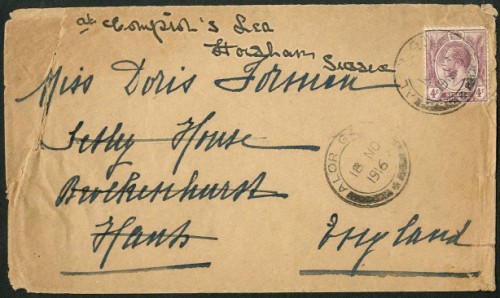 at Compton's Lea
Horsham
Sussex
Miss Doris Forman
Setley House
Brockenhurst
Hants England
ALOR
18 NO
1916
4c 4c